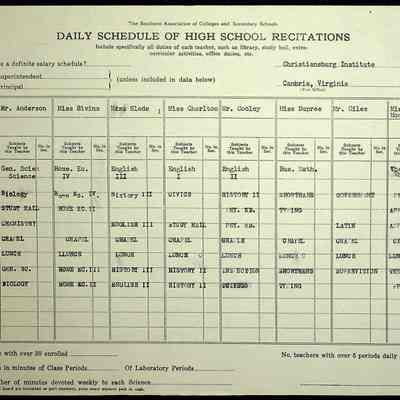 The Southern Association of Colleges and Secondary Schools
DAILY SCHEDULE OF HIGH SCHOOL RECITATIONS
Include specifically all duties of each teacher, such as library, study hall, extra-
curricular activities, office duties, etc.
e a definite salary schedule? Christiansburg Institute
uperintendent
rincipal (unless included in data below) Cambria, Virginia
Mr. Anderson Miss Bivins Miss Slade Miss Charlton Mr. Cooley Miss Dupree Mr. Giles
Subjects Taught by this Teacher No. in Sec. Subjects Taught by this Teacher No. in Sec. Subjects Taught by this Teacher No. in Sec. Subjects Taught by this Teacher No. in Sec. Subjects Taught by this Teacher No. in Sec. Subjects Taught by this Teacher No. in Sec. Subjects Taught by this Teacher No. in Sec.
Gen. Scien Home. Ec. English English English Bus. Math.
Science IV III I II
Biology Home Ec. IV. History III CIVICS HISTORY II SHORTHAND GOVERNMENT
STUDY HALL HOME EC.II PHY. ED. TYPING
CHEMISTRY ENGLISH III STUDY HALL PHY. ED. LATIN
CHAPEL CHAPEL CHAPEL CHAPEL CHAPEL CHAPEL CHAPEL
LUNCH LLUNCH LUNCH LUNCH LUNCH LUNCH LUNCH
GEN. SC. HOME EC.III HISTORY III HISTORY II SHORTHAND SUPERVISION
BIOLOGY HOME EC.II ENGLISH II HISTORY II TYPING
s with over 30 enrolled No. teachers with over 6 periods daily
s in minutes of Class Periods Of Laboratory Periods
ber of minutes devoted weekly to each Science